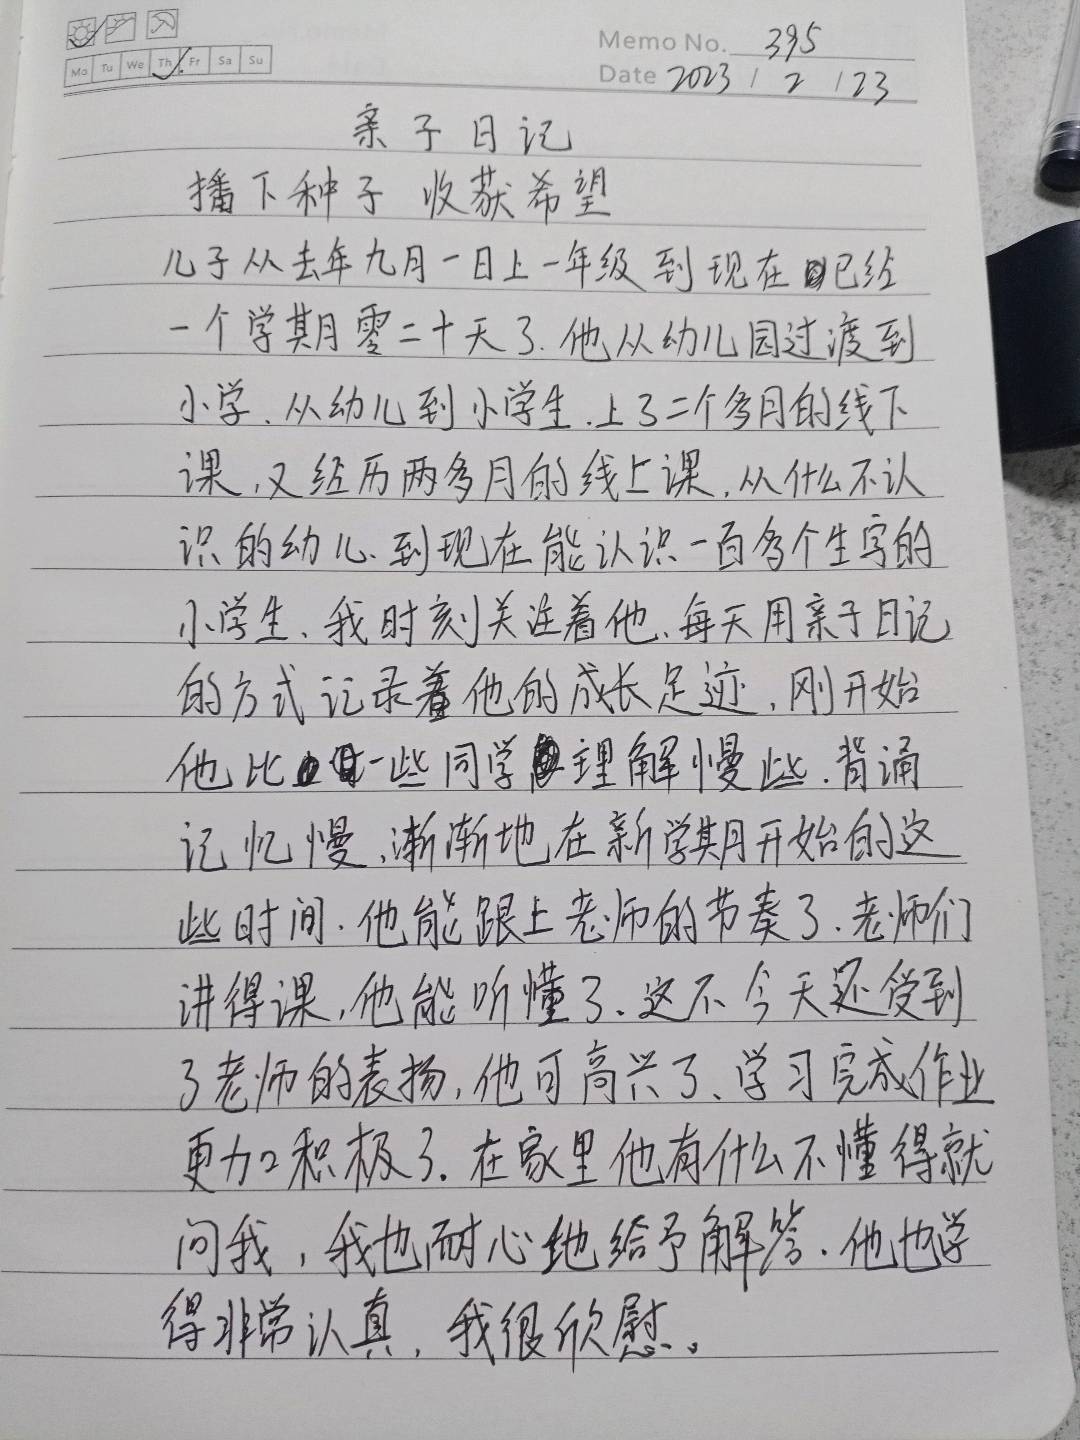 Mo Tu We Th Fr Sa Su
Memo No. 395
Date 2023 / 2 / 23
亲子日记
播下种子 收获希望
儿子从去年九月一日上一年级到现在已经
一个学期零二十天了.他从幼儿园过渡到
小学、从幼儿到小学生.上了二个多月的线下
课,又经历两多月的线上课,从什么不认
识的幼儿、到现在能认识一百多个生字的
小学生、我时刻关注着他、每天用亲子日记
的方式记录着他的成长足迹,刚开始
他比一些同学理解慢些.背诵
记忆慢,渐渐地在新学期开始的这
些时间.他能跟上老师的节奏了.老师们
讲得课,他能听懂了、这不今天还受到
了老师的表扬,他可高兴了、学习完成作业
更加积极了.在家里他有什么不懂得就
问我,我也耐心地给予解答.他也学
得非常认真,我很欣慰。